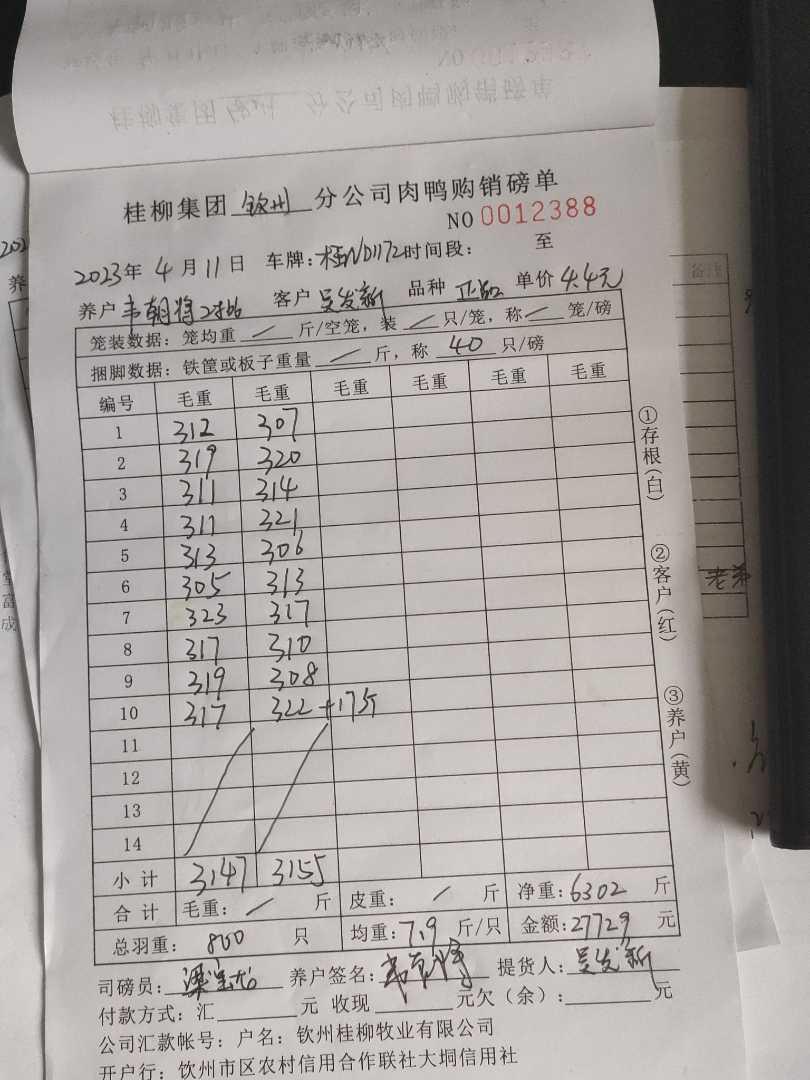 桂柳集团 钦州 分公司肉鸭购销磅单
NO 0012388
2023年 4 月 11 日 车牌:桂ND1172 时间段: 至
养户 韦朝将 客户 吴发新 品种 正品 单价 4.4元
笼装数据:笼均重 / 斤/空笼,装 / 只/笼,称 / 笼/磅
捆脚数据:铁筐或板子重量 / 斤,称 40 只/磅
编号 毛重 毛重 毛重 毛重 毛重 毛重
1 312 307
2 319 320
3 311 314
4 311 321
5 313 306
6 305 313
7 323 317
8 317 310
9 319 308
10 317 322 +17斤
11
12
13
14
小计 3147 3155
合计 毛重: / 斤 皮重: / 斤 净重:6302 斤
总羽重: 800 只 均重:7.9 斤/只 金额:27729 元
司磅员: 养户签名: 提货人:吴发新
付款方式:汇 元 收现 元欠(余): 元
公司汇款帐号:户名:钦州桂柳牧业有限公司
开户行:钦州市区农村信用合作联社大垌信用社
①存根(白)
②客户(红)
③养户(黄)